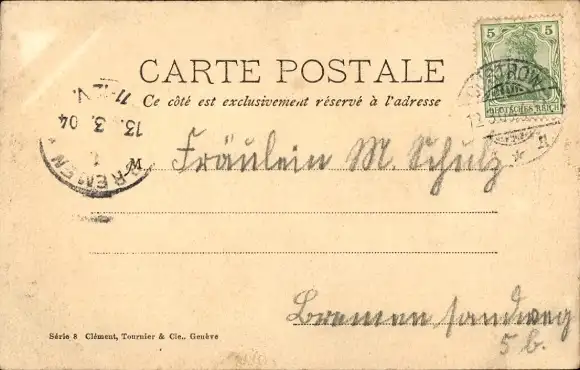 CARTE POSTALE
Ce côté est exclusivement réservé à l'adresse
5 5
DEUTSCHES REICH
BREMEN
1.
13. 3. 04
11-12 V.
M Fräulein M. Schulz
Bremen, Sandweg
5 b.
Série 8 Clément, Tournier & Cie., Genève